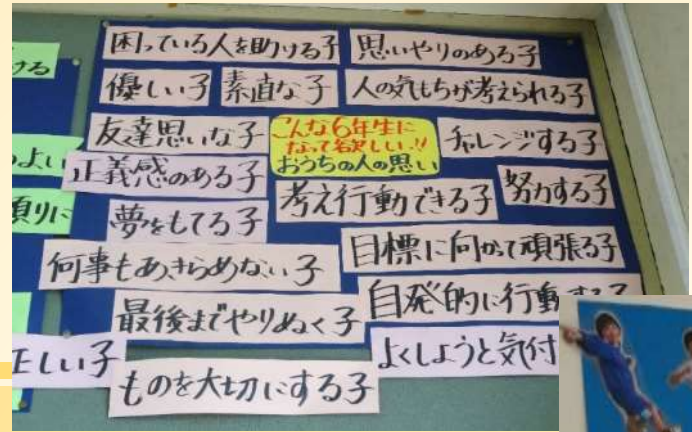 ける
困っている人を助ける子
思いやりのある子
優しい子
素直な子
人の気もちが考えられる子
友達思いな子
こんな6年生に
なって欲しい!!
おうちの人の思い
チャレンジする子
よい
正義感のある子
考え行動できる子
努力する子
頼りに
夢をもてる子
目標に向かって頑張る子
何事もあきらめない子
自発的に行動する子
最後までやりぬく子
正しい子
よくしようと気付
ものを大切にする子